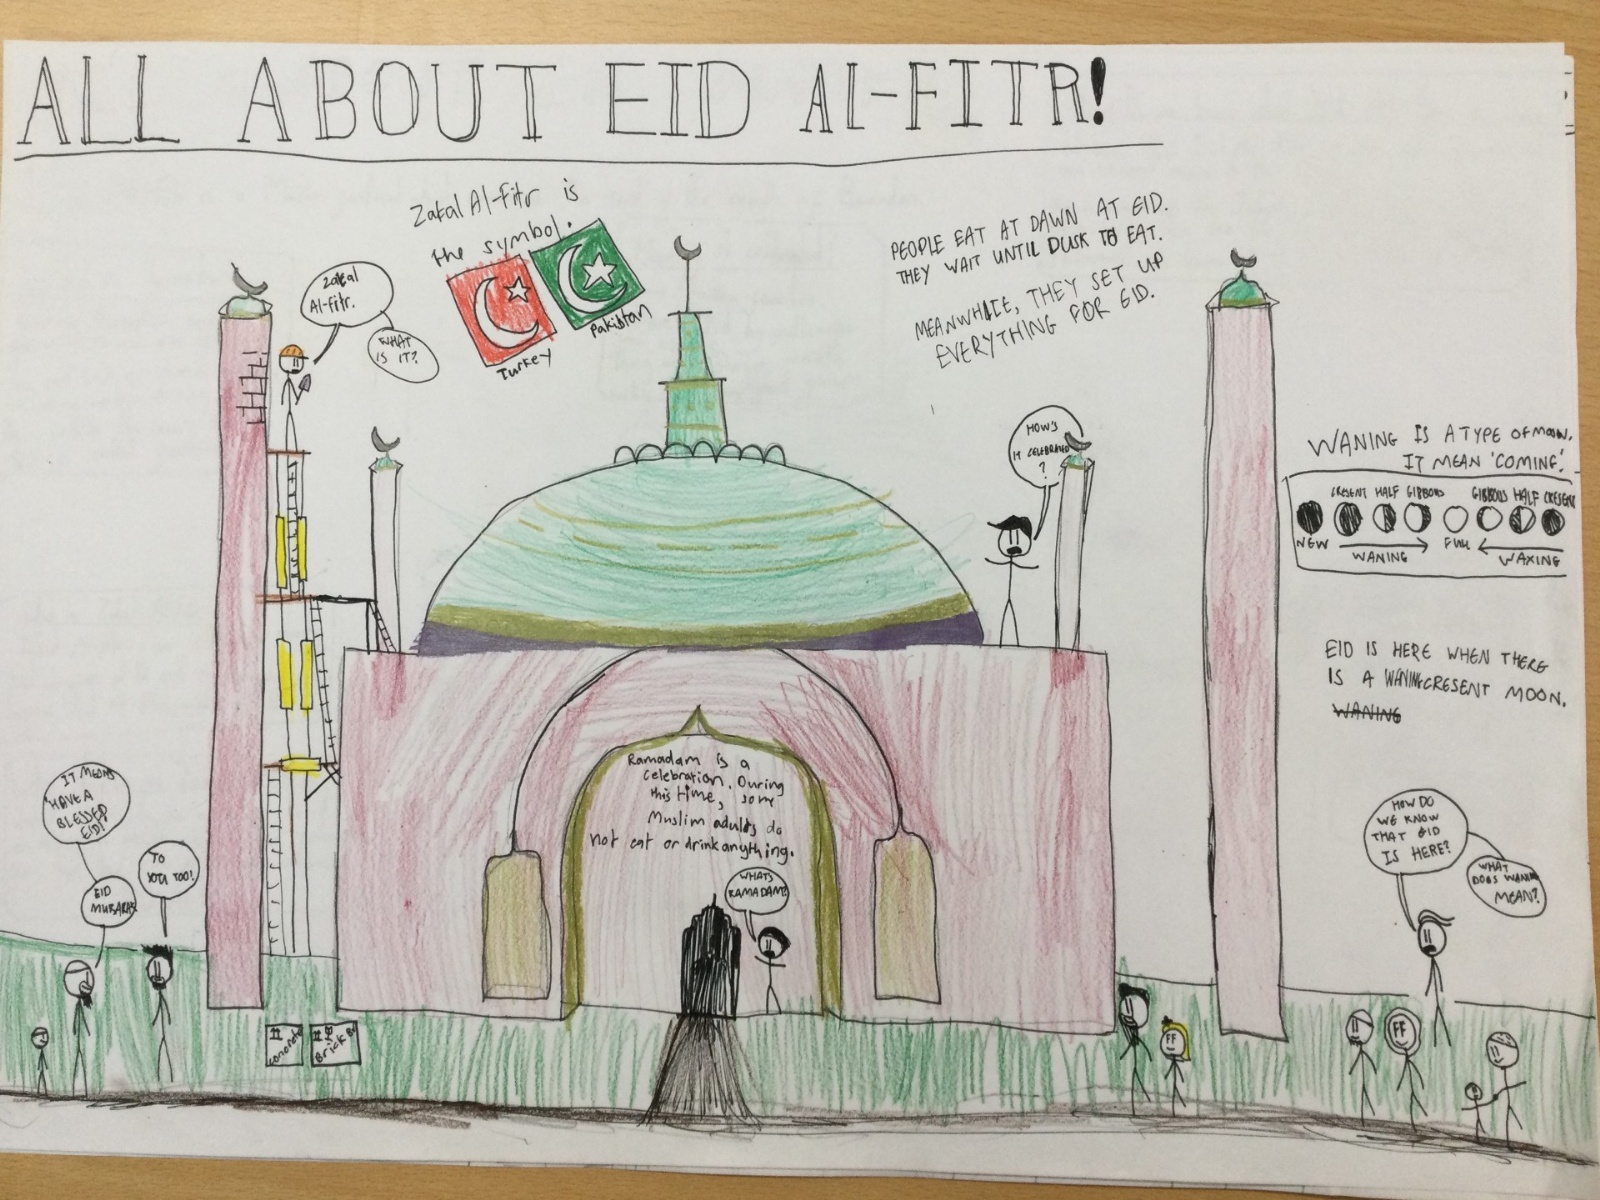 ALL ABOUT EID Al-FITR!
Zakal Al-Fitr is
the symbol.
Turkey
Pakistan
PEOPLE EAT AT DAWN AT EID.
THEY WAIT UNTIL DUSK TO EAT.
MEANWHILE, THEY SET UP
EVERYTHING FOR EID.
Zakal
Al-fitr.
WHAT
IS IT?
HOW'S
IT CELEBRATED
?
WANING IS A TYPE OF MOON.
IT MEAN 'COMING'.
CRESENT HALF GIBBOUS GIBBOUS HALF CRESENT
NEW WANING FULL WAXING
EID IS HERE WHEN THERE
IS A WANING CRESENT MOON.
WANING
Ramadam is a
celebration. During
this time, some
Muslim adults do
not eat or drink anything.
WHATS
RAMADAM?
IT MEANS
HAVE A
BLESSED
EID!
EID
MUBARAK
TO
YOU TOO!
HOW DO
WE KNOW
THAT EID
IS HERE?
WHAT
DOES WANING
MEAN?
concrete
Brick
FF
FF